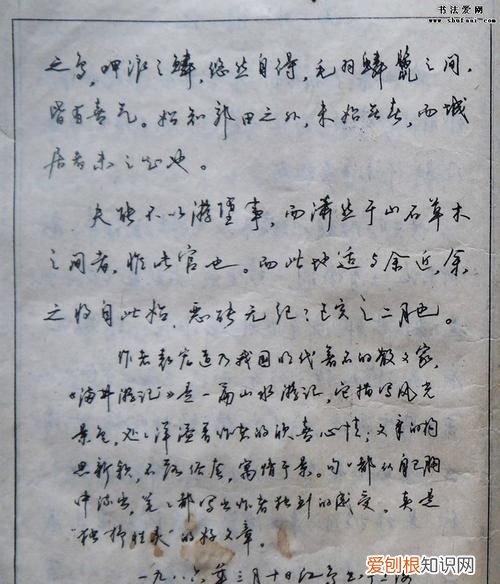 书法爱网
www.shufaai.com
之鸟,呷浪之鳞,悠然自得,毛羽鳞鬣之间,
皆有喜气。始知郊田之外,未始无春,而城
居者未之知也。
夫能不以游堕事,而潇然于山石草木
之间者,惟此官也。而此地适与余近,余
之游自此始,恶能无纪?己亥之二月也。
作者袁宏道乃我国明代著名的散文家,
《满井游记》是一篇山水游记,它描写风光
景色,处处洋溢着作者的欣喜心情;文章的构
思新颖,不落俗套,寓情于景。句句都从自己胸
中流出,笔笔都写出作者独到的感受。真是
“独抒性灵”的好文章。
一九八六年三月十日
爱刨根知识网